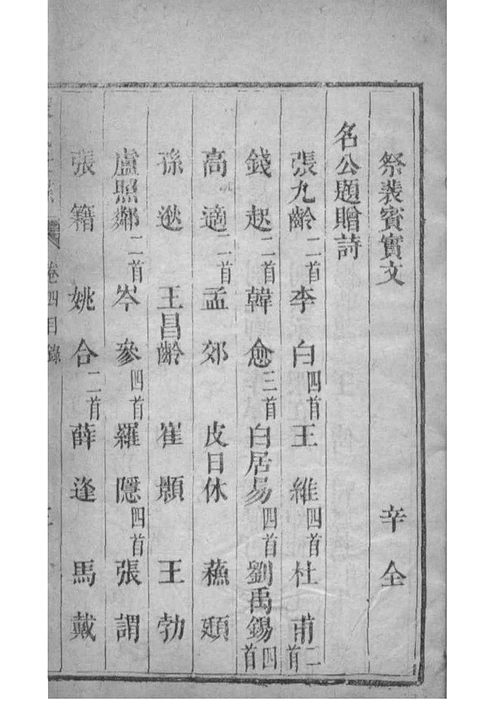 祭裴賓實文 辛全
名公題贈詩
張九齡二首 李白四首 王維四首 杜甫二首
錢起二首 韓愈三首 白居易四首 劉禹錫四首
高適二首 孟郊 皮日休 蘓頲
孫逖 王昌齡 崔顥 王勃
盧照鄰二首 岑參四首 羅隱四首 張謂
張籍 姚合二首 薛逢 馬戴
卷四目錄